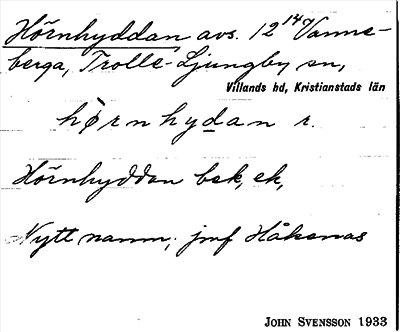 Hörnhyddan avs. 12¹⁴ Vanne-
berga, Trolle-Ljungby sn,
Villands hd, Kristianstads län
hørnhydan r.
Hörnhyddan bek, ek,
Nytt namn; jmf Håkanas
JOHN SVENSSON 1933